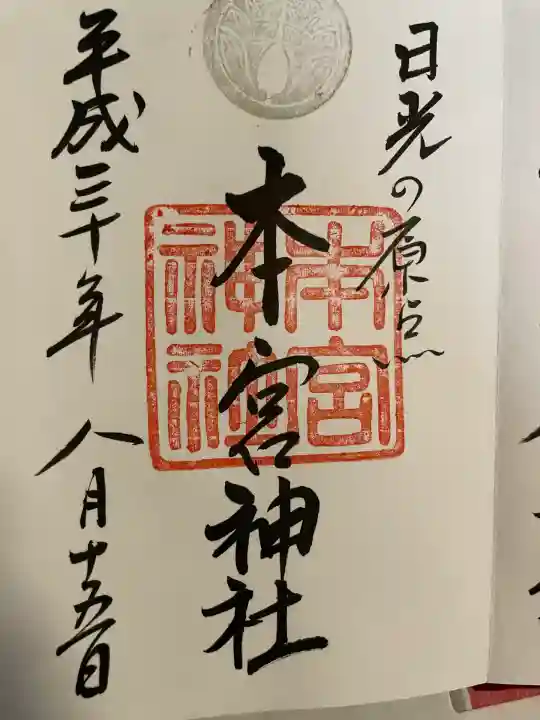 日光の原点
本宮神社
本宮
神社
平成三十年 八月十五日